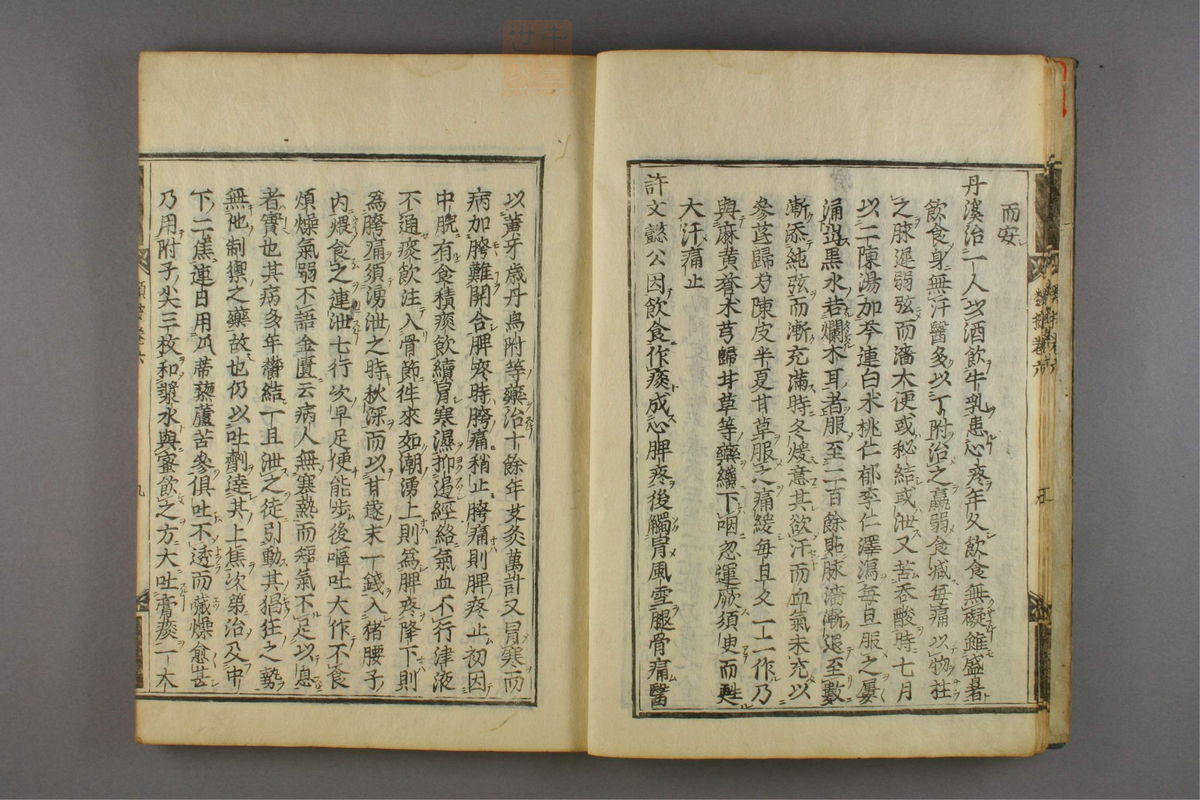 而安
丹溪治一人以酒飲牛乳患心疼年久飲食無礙雖盛暑
飲食身無汗醫多以丁附治之羸弱食减每痛以物拄
之脉遲弱弦而濇大便或秘結或泄又苦吞酸時七月
以二陳湯加芩連白术桃仁郁李仁澤瀉每旦服之屢
涌出黒水若爛木耳者服至二百餘貼脉濇漸退至數
漸添純弦而漸充滿時冬煖意其欲汗而血氣未充以
參芪歸芍陳皮半夏甘草服之痛緩每旦夕一二作乃
與麻黄蒼术芎歸甘草等藥纔下咽忽運厥須臾而甦
大汗痛止
許文懿公因飲食作痰成心脾疼後觸冒風雪腿骨痛醫
以黄牙歳丹烏附等藥治十餘年艾灸萬計又冒寒而
病加胯難開合脾疼時胯痛稍止胯痛則脾疼止初因
中脘有食積痰飲續冒寒濕抑遏經絡氣血不行津液
不通痰飲注入骨節徃來如潮湧上則為脾疼降下則
為胯痛須湧泄之時秋深而以甘遂末一錢入猪腰子
内煨食之連泄七行次早足便能歩後嘔吐大作不食
煩燥氣弱不語金匱云病人無寒熱而短氣不足以息
者實也其病多年欝結一旦泄之徒引動其猖狂之勢
無他制禦之藥故也仍以吐劑達其上焦次第治及中
下二焦連日用瓜蒂藜蘆苦參俱吐不透而藏燥愈甚
乃用附子尖三枚和漿水與蜜飲之方大吐膏痰一大
類案卷六
九